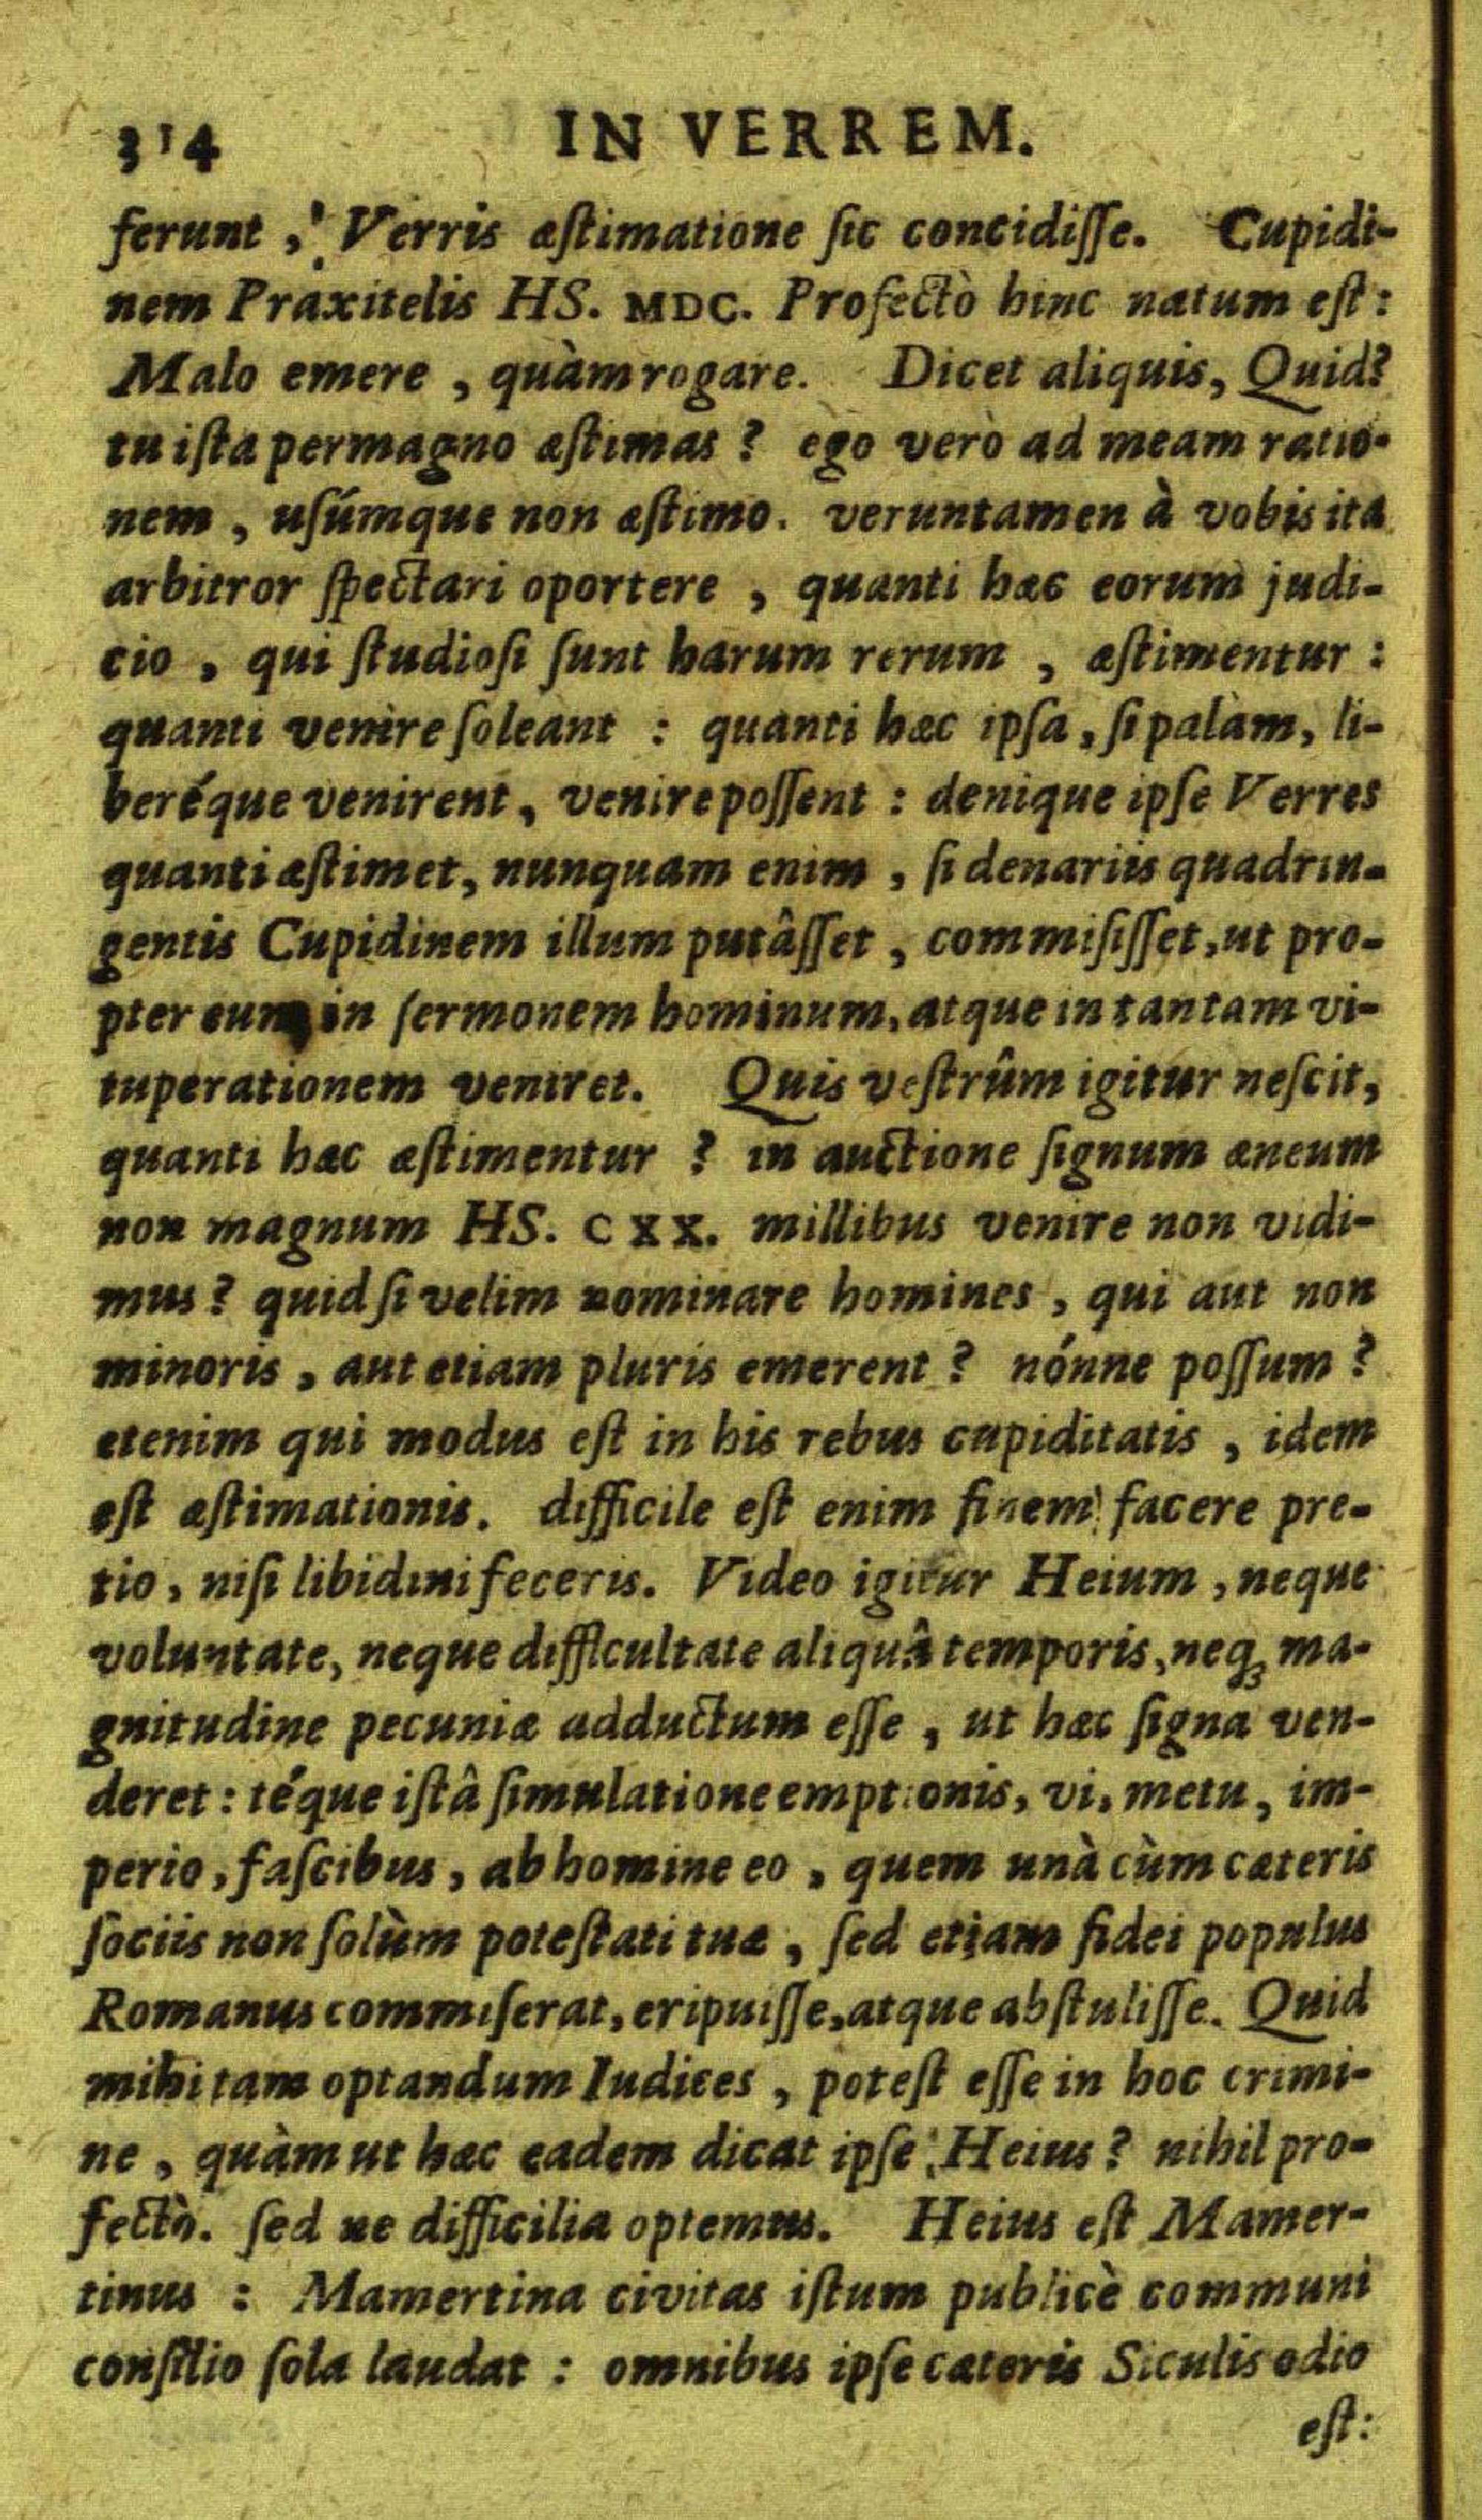 314 IN VERREM.
ferunt, Verris æstimatione sic concidisse. Cupidi-
nem Praxitelis HS. MDC. Profectò hinc natum est:
Malo emere, quàm rogare. Dicet aliquis, Quid?
tu ista permagno æstimas? ego verò ad meam ratio-
nem, usúmque non æstimo. veruntamen à vobis ita
arbitror spectari oportere, quanti hæc eorum judi-
cio, qui studiosi sunt harum rerum, æstimentur:
quanti venire soleant: quanti hæc ipsa, si palàm, li-
beréque venirent, venire possent: denique ipse Verres
quanti æstimet, nunquam enim, si denariis quadrin-
gentis Cupidinem illum putâsset, commisisset, ut pro-
pter eum in sermonem hominum, atque in tantam vi-
tuperationem veniret. Quis vestrûm igitur nescit,
quanti hæc æstimentur? in auctione signum æneum
non magnum HS. CXX. millibus venire non vidi-
mus? quid si velim nominare homines, qui aut non
minoris, aut etiam pluris emerent? nónne possum?
etenim qui modus est in his rebus cupiditatis, idem
est æstimationis. difficile est enim finem facere pre-
tio, nisi libidini feceris. Video igitur Heium, neque
voluntate, neque difficultate aliquâ temporis, neq; ma-
gnitudine pecuniæ adductum esse, ut hæc signa ven-
deret: téque istâ simulatione emptionis, vi, metu, im-
perio, fascibus, ab homine eo, quem unà cùm cæteris
sociis non solùm potestati tuæ, sed etiam fidei populus
Romanus commiserat, eripuisse, atque abstulisse. Quid
mihi tam optandum Iudices, potest esse in hoc crimi-
ne, quàm ut hæc eadem dicat ipse Heius? nihil pro-
fectò. sed ne difficilia optemus. Heius est Mamer-
tinus: Mamertina civitas istum publicè communi
consilio sola laudat: omnibus ipse cæteris Siculis odio
est: